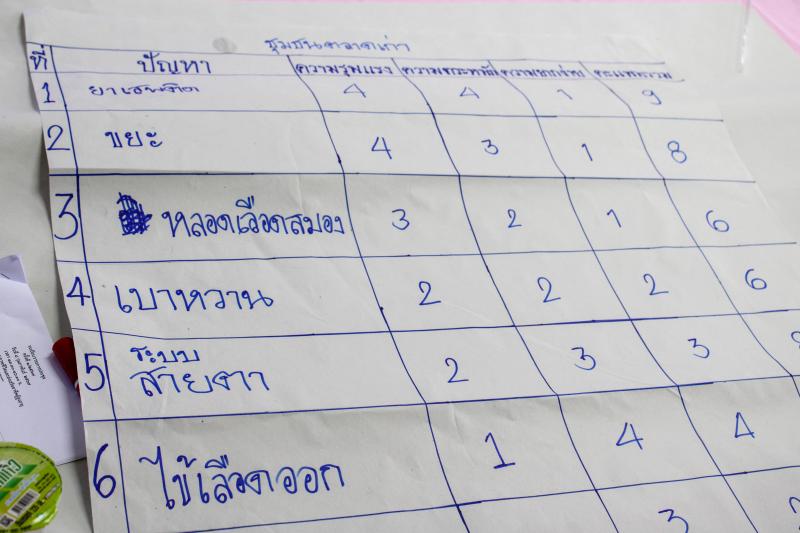 ชุมชนตลาดเก่า
ที่ ปัญหา ความรุนแรง ความตระหนัก ความยากง่าย คะแนนรวม
1 ยาเสพติด 4 4 1 9
2 ขยะ 4 3 1 8
3 หลอดเลือดสมอง 3 2 1 6
4 เบาหวาน 2 2 2 6
5 ระบบ
สายตา 2 3 3
6 ไข้เลือดออก 1 4 4
3